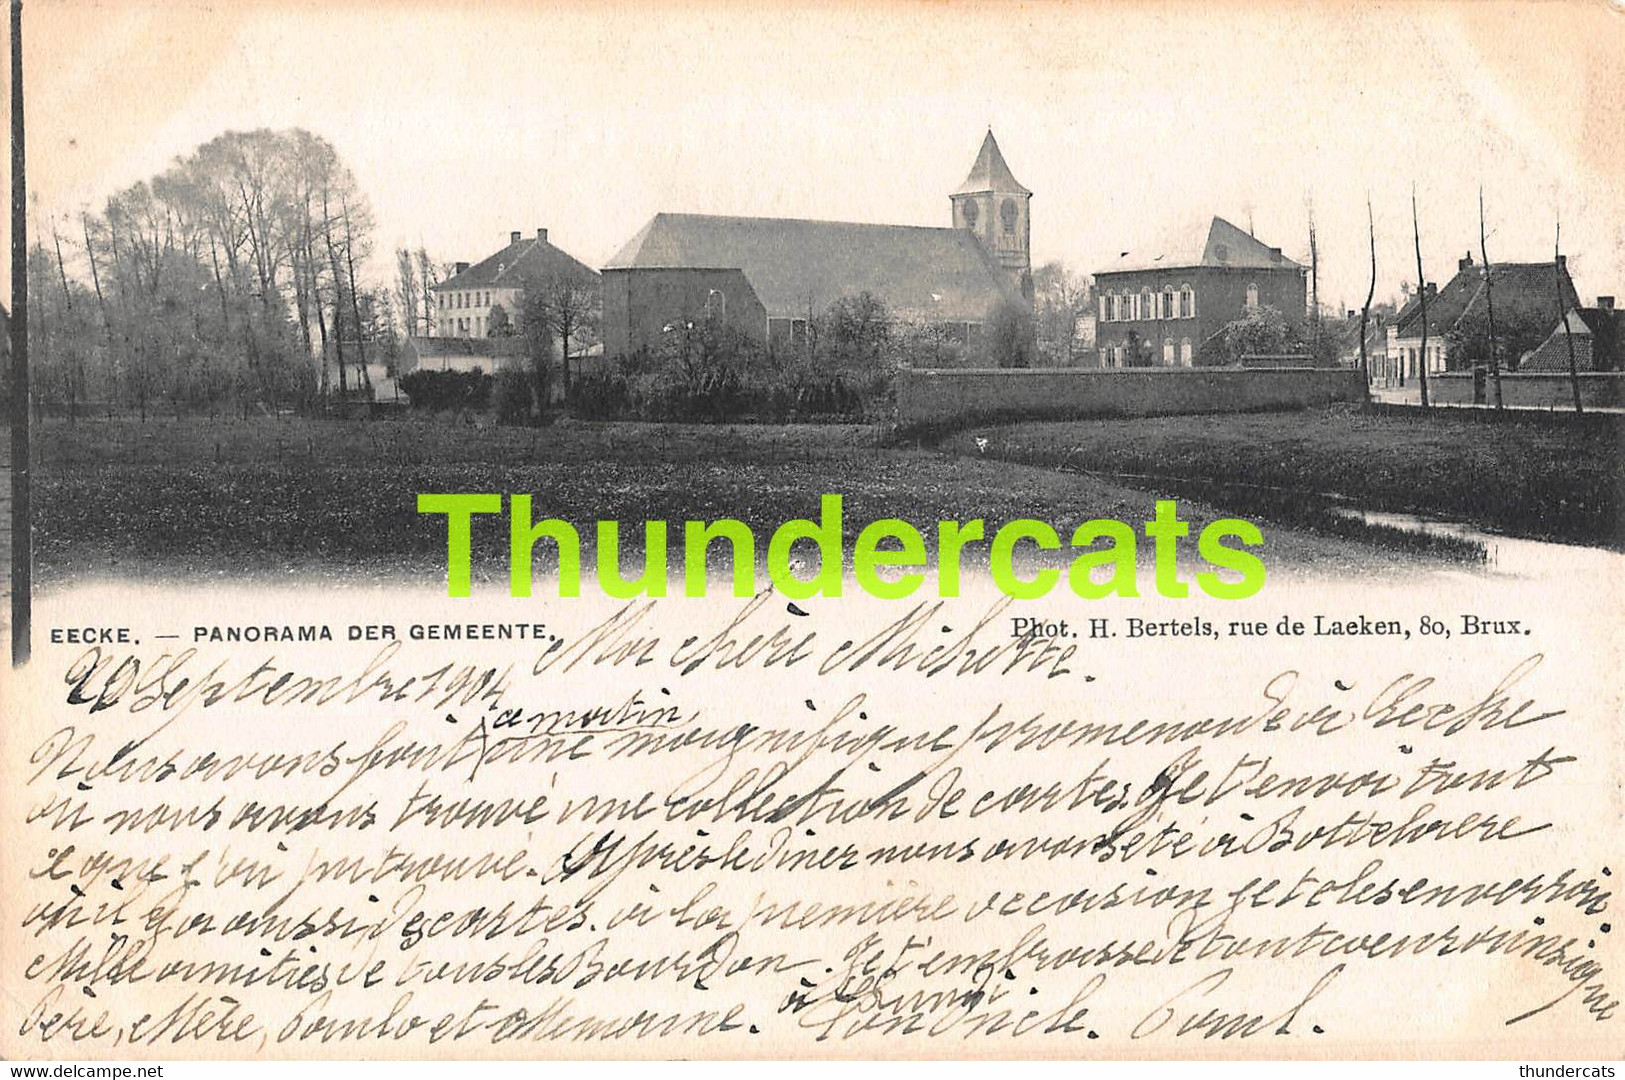 Thundercats
EECKE. — PANORAMA DER GEMEENTE.
Phot. H. Bertels, rue de Laeken, 80, Brux.
Ma chère Michette.
20 Septembre 1904
ce matin
Nous avons fait une magnifique promenade à Eecke
où nous avons trouvé une collection de cartes. Je t'envoi tout
ce que j'ai pu trouvé. Après le diner nous avons été à Bottelaere
où il y a aussi des cartes. à la première occasion je te les enverrai
Mille amitiés de tous les Bourdon. Je t'embrasse de tout coeur ainsi que
Père, Mère, Paulo et Memaine. à lundi. Ton Oncle. Paul.
www.delcampe.net
thundercats